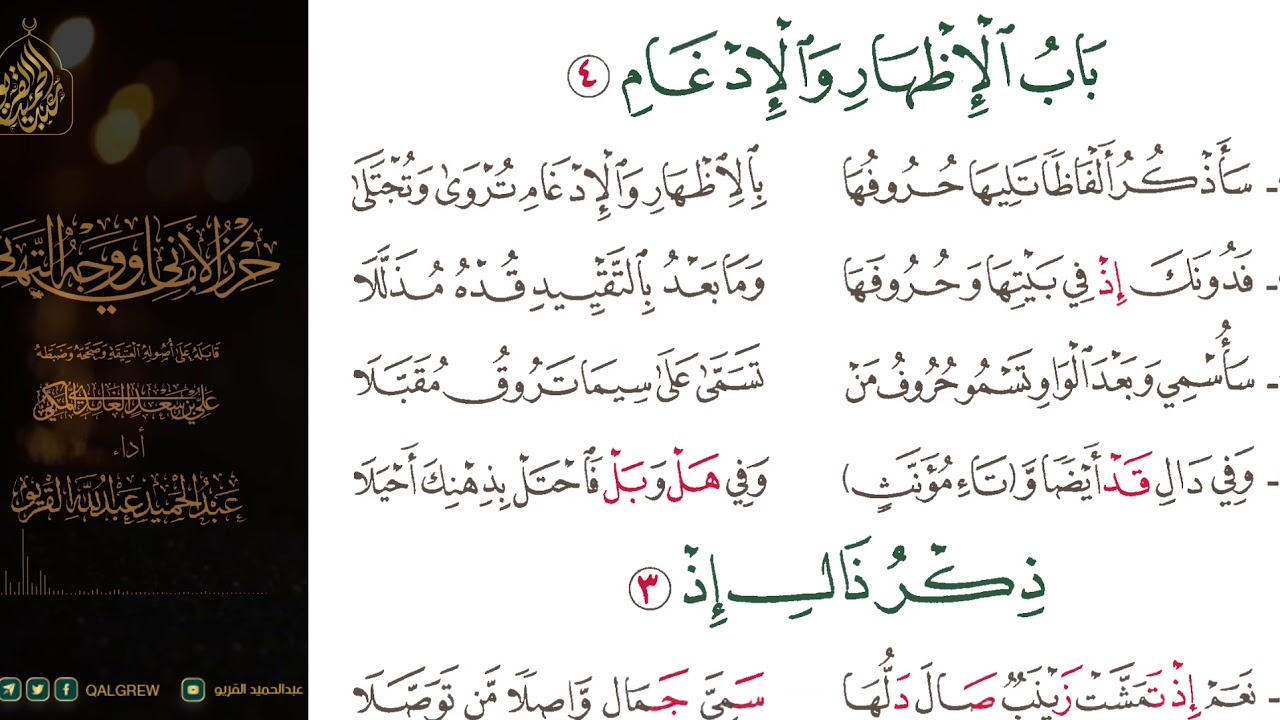 بَابُ ٱلْإِظْهَارِ وَٱلْإِدْغَامِ ٤
سَأَذْكُرُ أَلْفَاظًا تَلِيهَا حُرُوفُهَا بِالِاظْهَارِ وَٱلْإِدْغَامِ تُرْوَىٰ وَتُجْتَلَىٰ
فَدُونَكَ إِذْ فِي بَيْتِهَا وَحُرُوفَهَا وَمَا بَعْدُ بِٱلتَّقْيِيدِ قُدْهُ مُذَلَّلَا
سَأُسْمِي وَبَعْدَ ٱلْوَاوِ تَسْمُو حُرُوفُ مَنْ تَسَمَّىٰ عَلَىٰ سِيمَا تَرُوقُ مُقَبَّلَا
وَفِي دَالِ قَدْ أَيْضًا وَّ(تَاءِ مُؤَنَّثٍ) وَفِي هَلْ وَبَلْ فَٱحْتَلْ بِذِهْنِكَ أَحْيَلَا
ذِكْرُ ذَالِ إِذْ ٣
نَعَمْ إِذْ تَمَشَّتْ زَيْنَبٌ صَالَ دَلُّهَا سَمِيَّ جَمَالٍ وَّاصِلًا مَّن تَوَصَّلَا
عبد الحميد القريو
حرز الأماني ووجه التهاني
قابله على أصوله العتيقة وصححه وضبطه
علي بن سعد الغامدي المكي
أداء
عبد الحميد عبد الله القريو
QALGREW عبدالحميد القريو